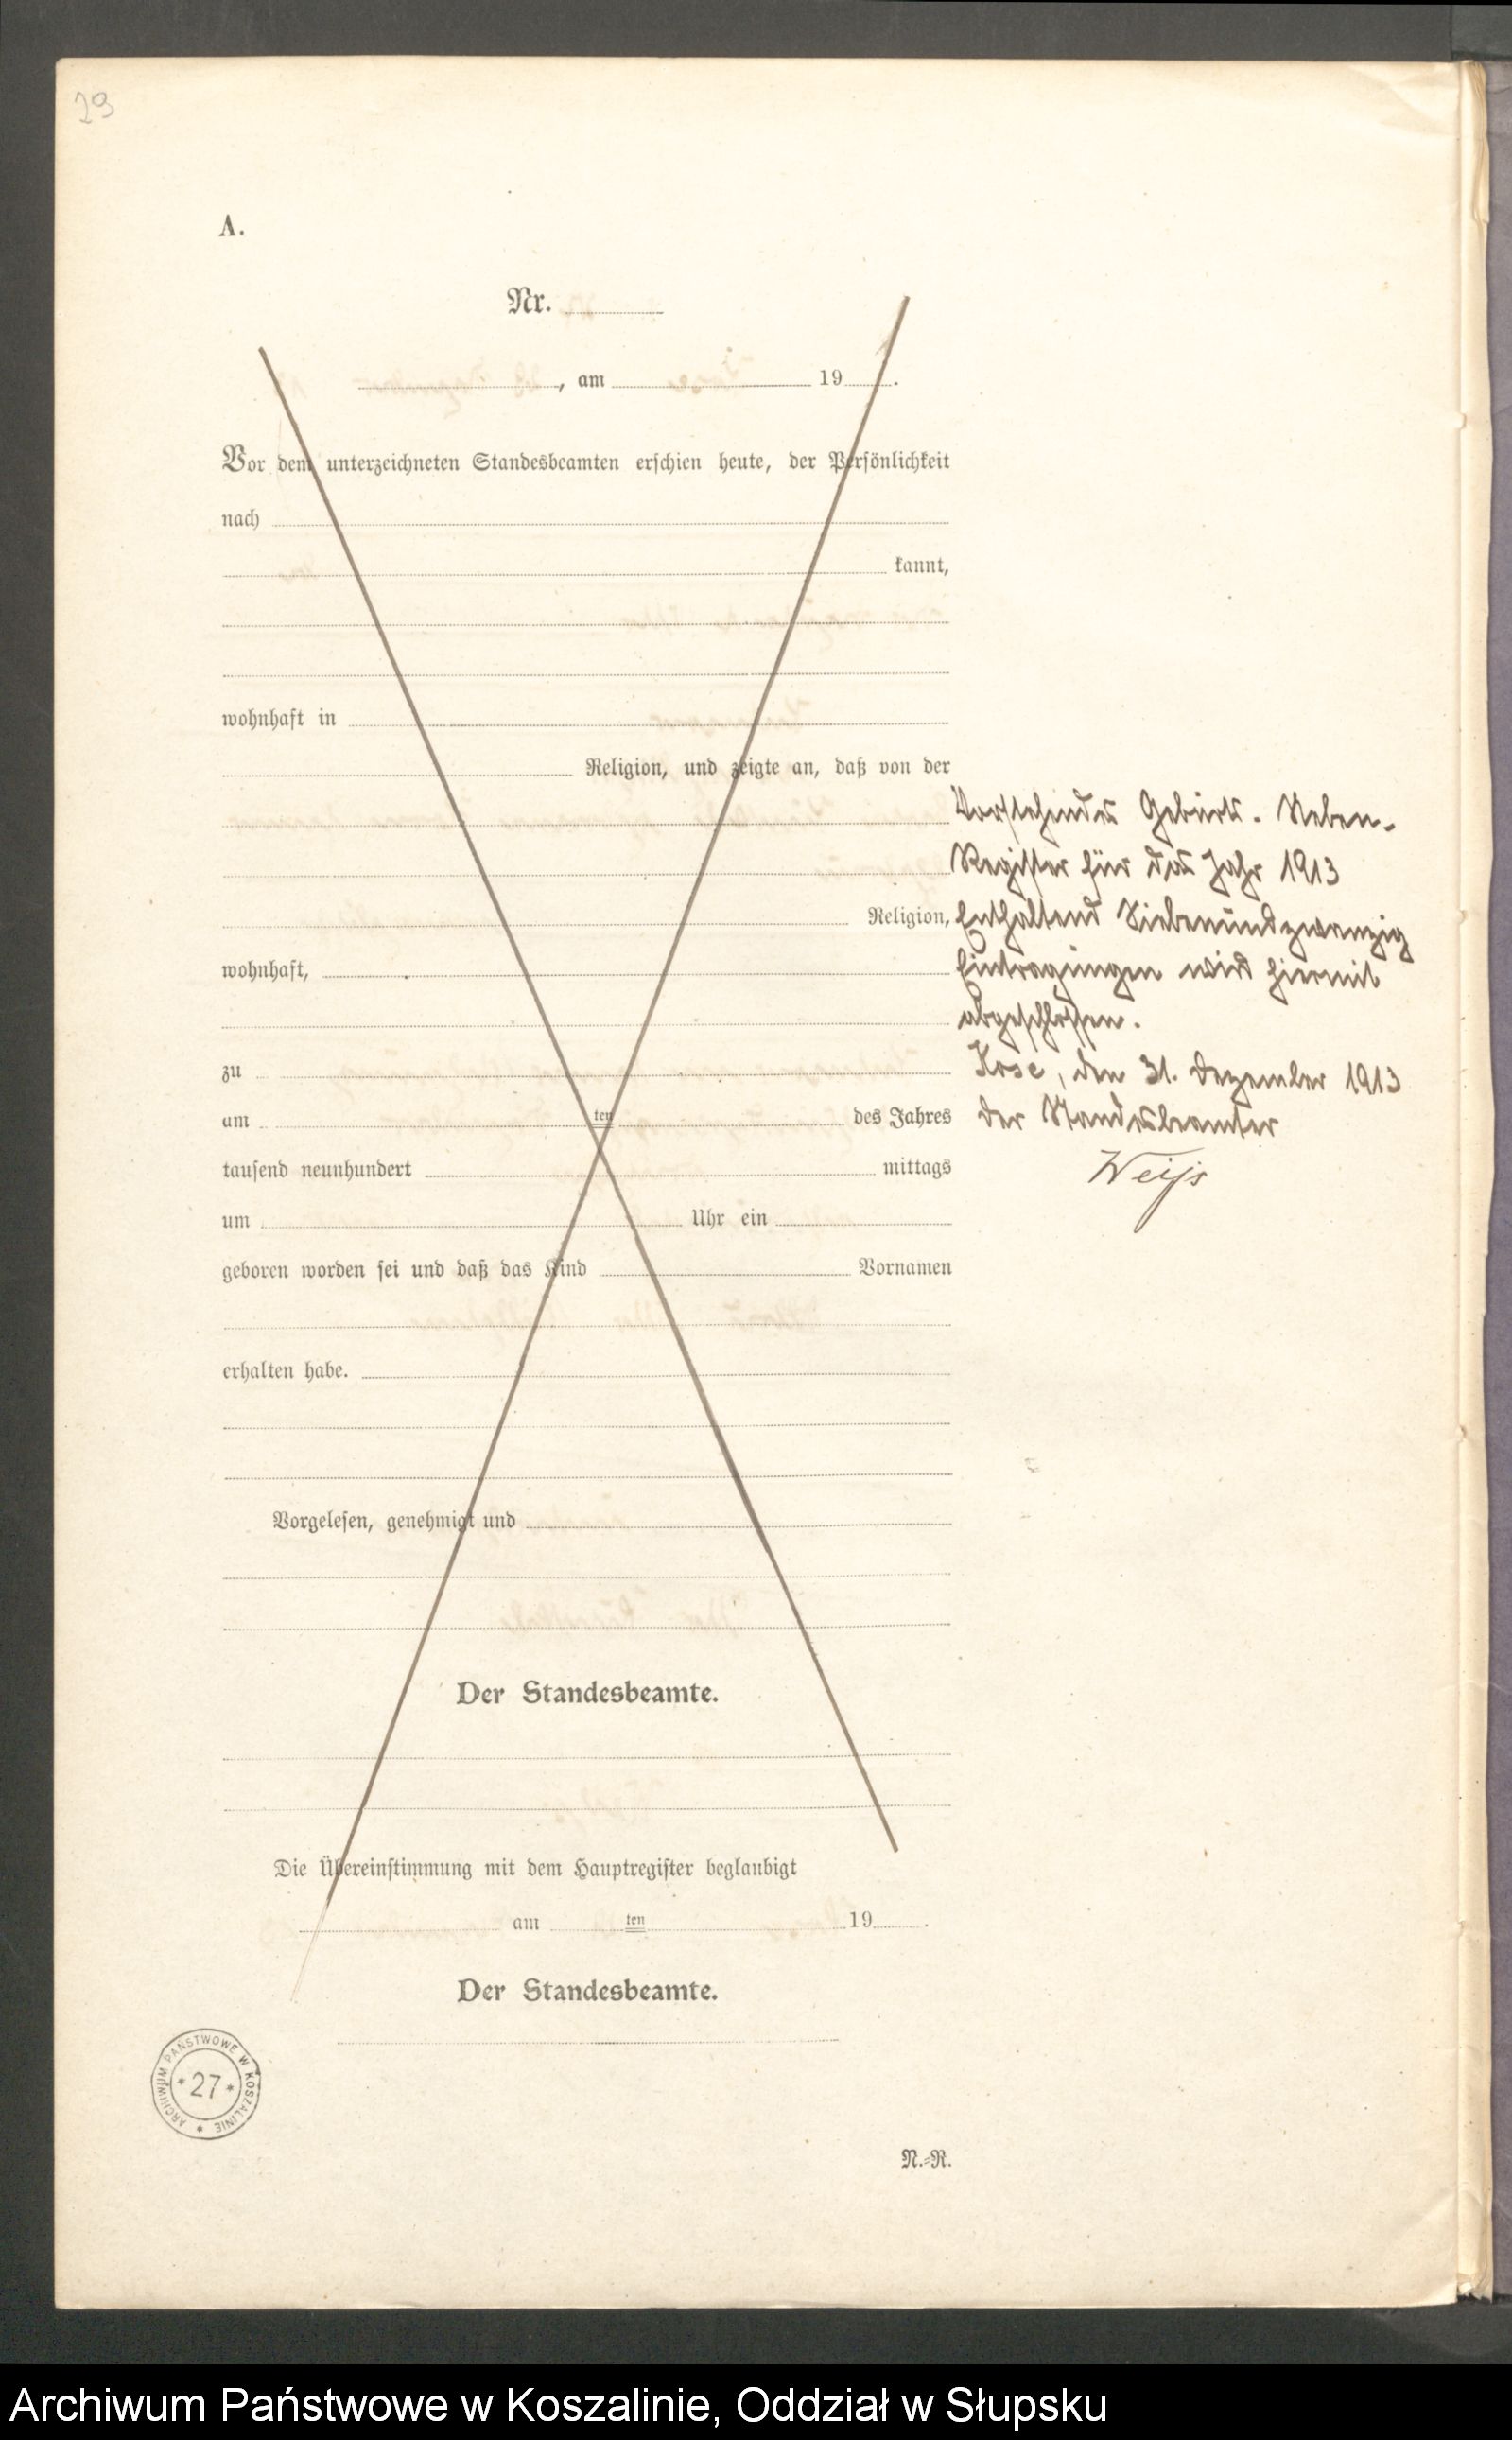 29
A.
Nr.
, am 19 .
Vor dem unterzeichneten Standesbeamten erschien heute, der Persönlichkeit
nach
kannt,
wohnhaft in
Religion, und zeigte an, daß von der
Religion,
wohnhaft,
zu
am ten des Jahres
tausend neunhundert mittags
um Uhr ein
geboren worden sei und daß das Kind Vornamen
erhalten habe.
Vorgelesen, genehmigt und
Der Standesbeamte.
Die Übereinstimmung mit dem Hauptregister beglaubigt
am ten 19 .
Der Standesbeamte.
N.=R.
Vorstehendes Geburts. Neben-
Register für das Jahr 1913
Enthaltend Siebenundzwanzig
Eintragungen wird hiermit
abgeschlossen.
Kose, den 31. Dezember 1913
Der Standesbeamter
Weiss
ARCHIWUM PAŃSTWOWE W KOSZALINIE
*27*
Archiwum Państwowe w Koszalinie, Oddział w Słupsku